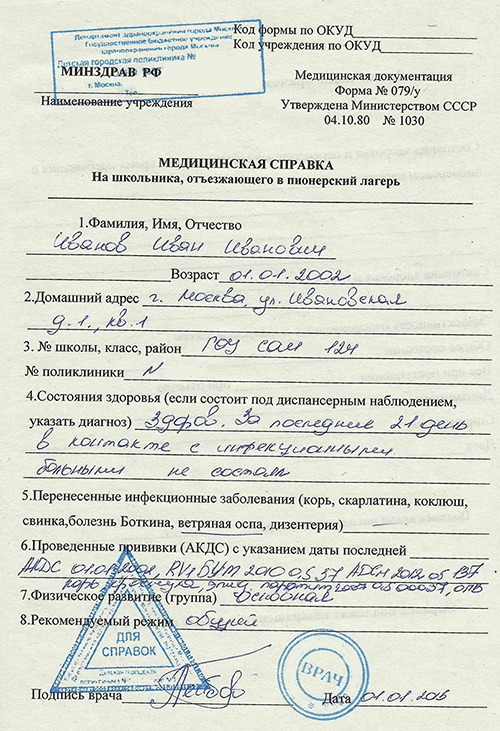 Код формы по ОКУД
Код учреждения по ОКУД
Департамент здравоохранения города Москвы
Государственное бюджетное учреждение
здравоохранения города Москвы
Детская городская поликлиника №
г. Москва,
Тел.
МИНЗДРАВ РФ
Наименование учреждения
Медицинская документация
Форма № 079/у
Утверждена Министерством СССР
04.10.80 № 1030
МЕДИЦИНСКАЯ СПРАВКА
На школьника, отъезжающего в пионерский лагерь
1.Фамилия, Имя, Отчество
Иванов Иван Иванович
Возраст 01.01.2002
2.Домашний адрес г. Москва, ул. Ивановская
д.1., кв.1
3. № школы, класс, район ГОУ СОШ 124
№ поликлиники N
4.Состояния здоровья (если состоит под диспансерным наблюдением,
указать диагноз) Здоров. За последние 21 день
в контакте с инфекционными
больными не состоял
5.Перенесенные инфекционные заболевания (корь, скарлатина, коклюш,
свинка,болезнь Боткина, ветряная оспа, дизентерия)
6.Проведенные прививки (АКДС) с указанием даты последней
АКДС
7.Физическое развитие (группа) основная
8.Рекомендуемый режим общий
ДЛЯ
СПРАВОК
ВРАЧ
Подпись врача
Дата 01.01.2015